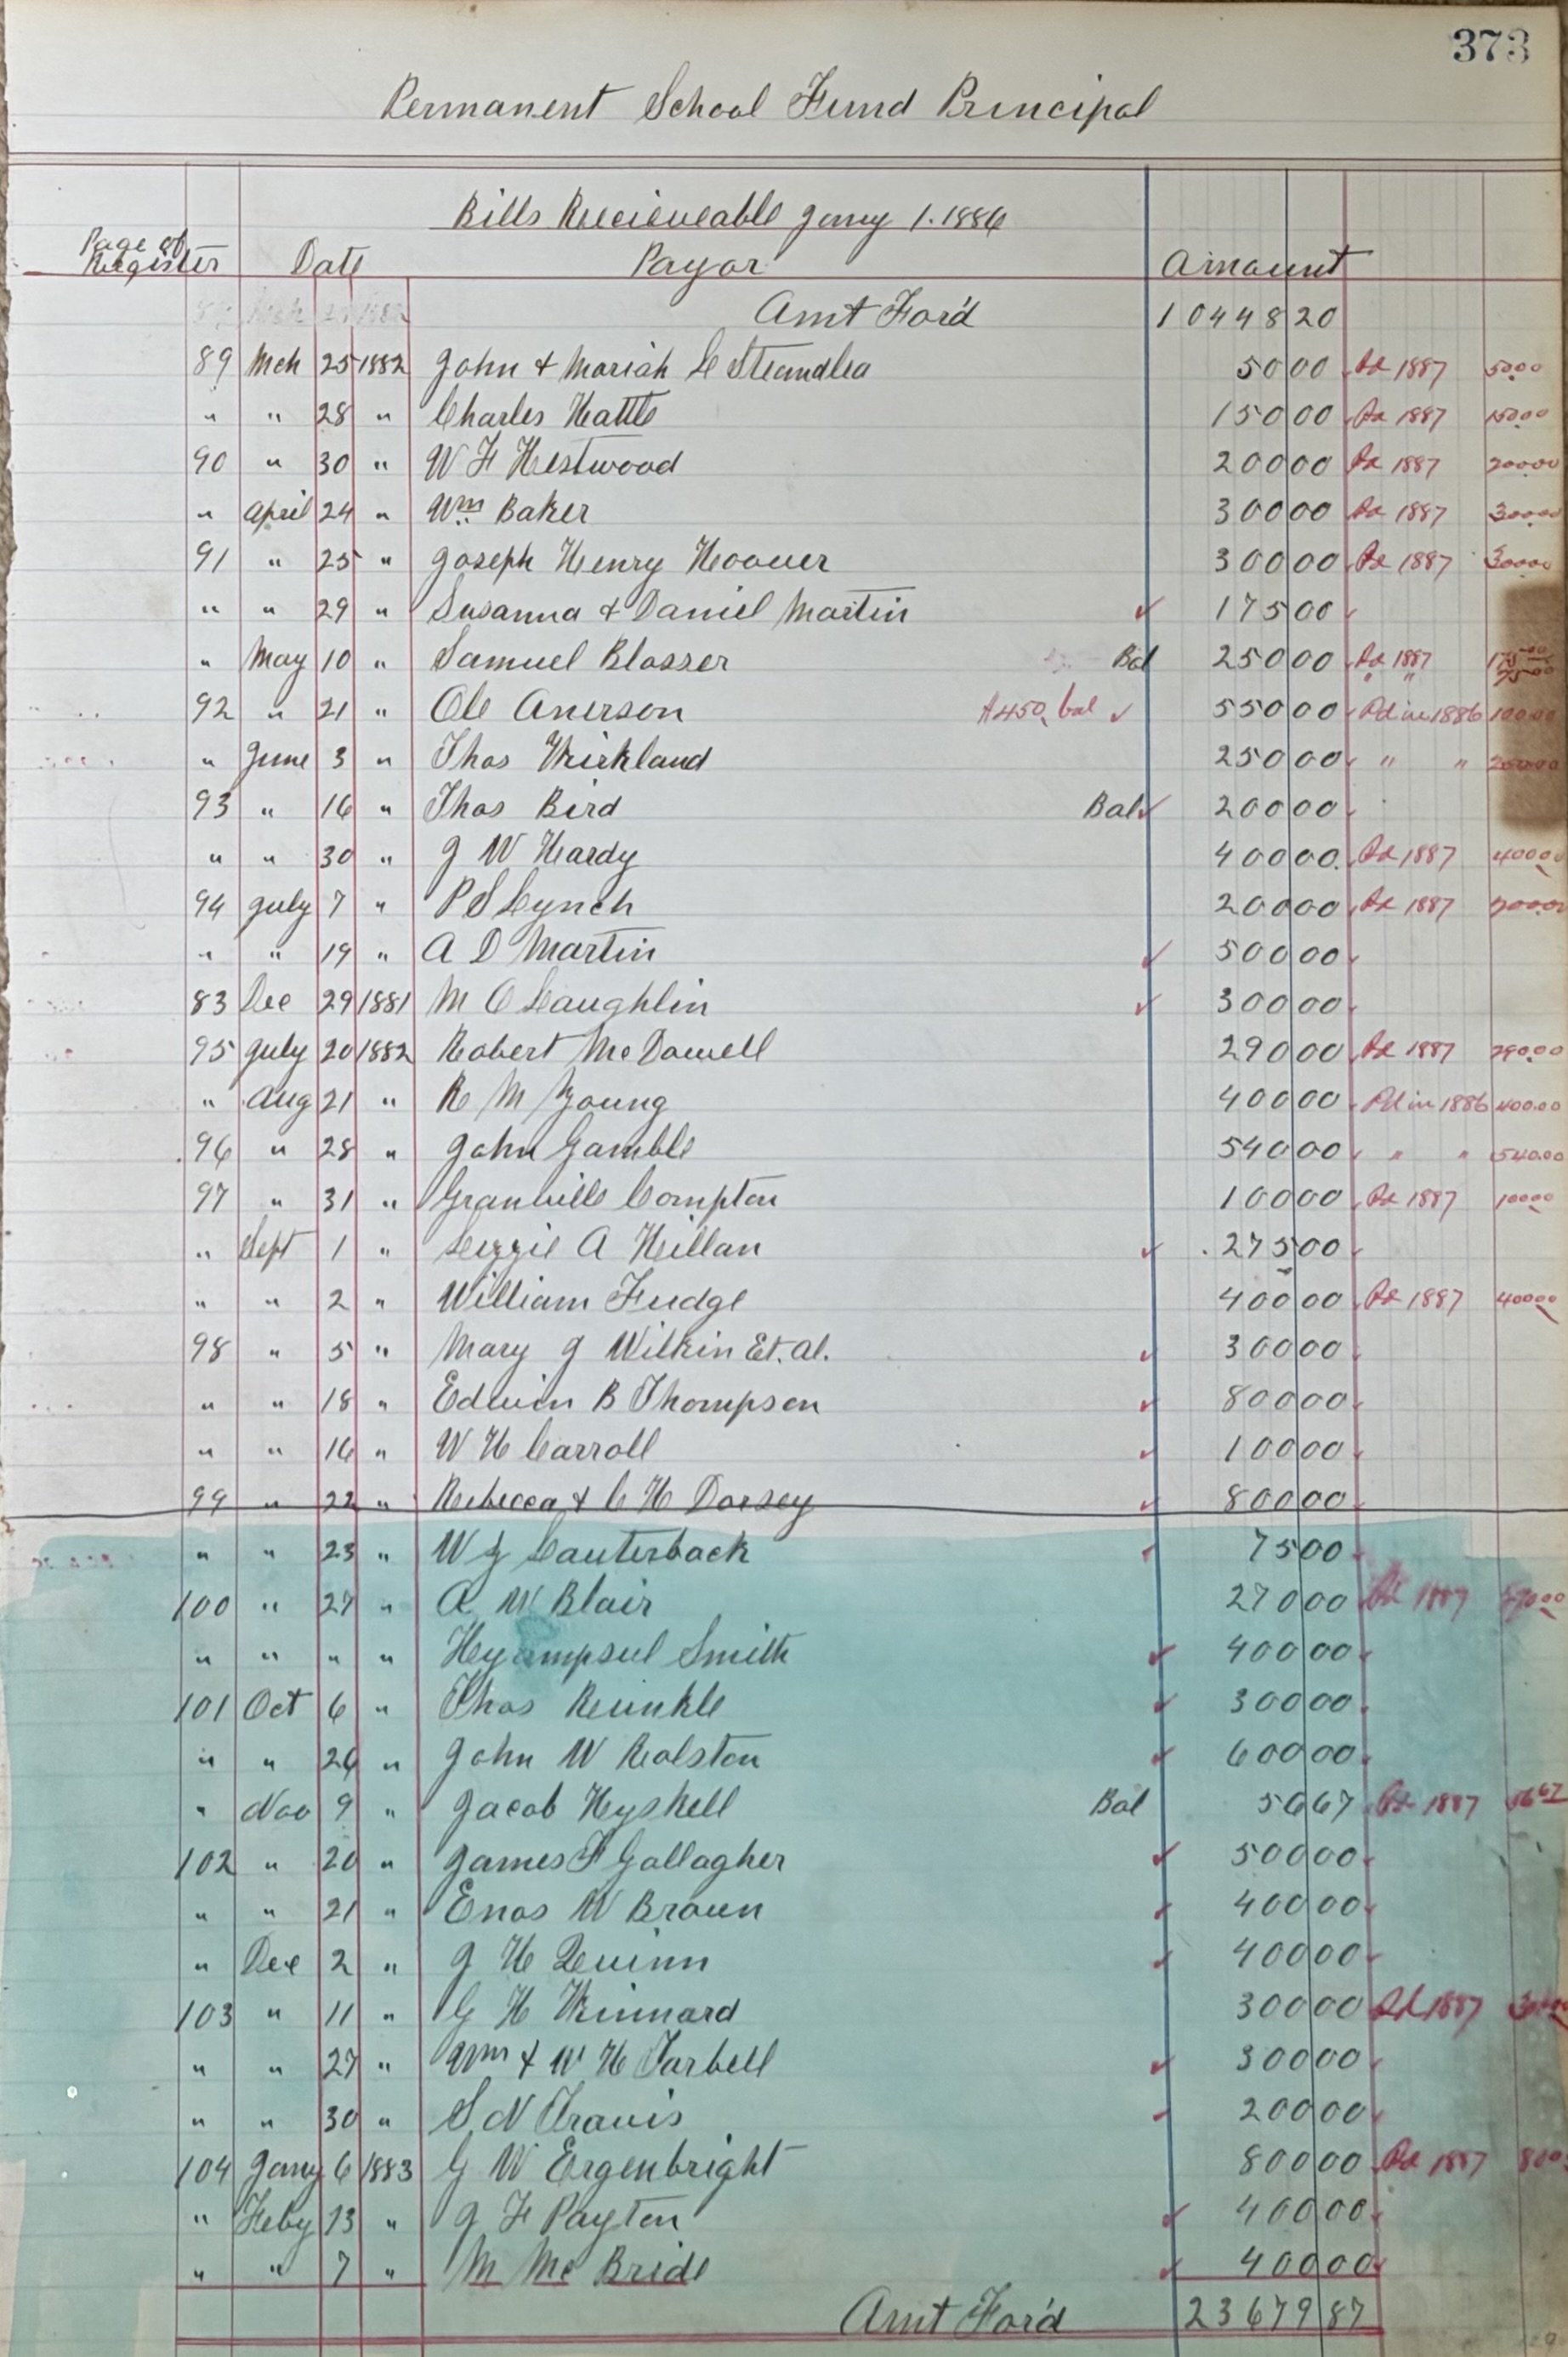 373
Permanent School Fund Principal
Bills Recieveable Jany 1. 1886
Page of Register Date Payor Amount
Amt Ford 10448 20
89 Mch 25 1882 John & Mariah L Steandlea 50 00 Pd 1887 50.00
" " 28 " Charles Hattle 150 00 Pd 1887 150.00
90 " 30 " W F Hestwood 200 00 Pd 1887 200.00
" April 24 " Wm Baker 300 00 Pd 1887 300.00
91 " 25 " Joseph Henry Hoover 300 00 Pd 1887 300.00
" " 29 " Susanna & Daniel Martin ✓ 175 00
" May 10 " Samuel Blosser Bal 250 00 Pd 1887 175.00
" " 75.00
92 " 21 " Ole Anerson $450 bal ✓ 550 00 Pd in 1886 100.00
" June 3 " Thos Kirkland 250 00 " " 250.00
93 " 16 " Thos Bird Bal ✓ 200 00
" " 30 " J W Hardy 400 00 Pd 1887 400.00
94 July 7 " P S Lynch 200 00 Pd 1887 200.00
" " 19 " A D Martin ✓ 500 00
83 Dec 29 1881 M O Laughlin ✓ 300 00
95 July 20 1882 Robert McDowell 290 00 Pd 1887 290.00
" Aug 21 " R M Young 400 00 Pd in 1886 400.00
96 " 28 " John Gamble 540 00 " " 540.00
97 " 31 " Granville Compton 100 00 Pd 1887 100.00
" Sept 1 " Lizzie A Killan ✓ 275 00
" " 2 " William Fudge 400 00 Pd 1887 400.00
98 " 5 " Mary J Wilkin Et. al. ✓ 300 00
" " 18 " Edwin B Thompson ✓ 800 00
" " 16 " W H Carroll ✓ 100 00
99 " 22 " Rebecca & C H Dorsey ✓ 800 00
" " 23 " W J Lauterback ✓ 75 00
100 " 27 " A W Blair 270 00 Pd 1887 270.00
" " " " Smith ✓ 400 00
101 Oct 6 " Thos Runkle ✓ 300 00
" " 26 " John W Ralston ✓ 600 00
" Nov 9 " Jacob Hyshell Bal 56 67 Pd 1887 56.67
102 " 20 " James F Gallagher ✓ 500 00
" " 21 " Enos W Brown ✓ 400 00
" Dec 2 " J H Quinn ✓ 400 00
103 " 11 " G H Kinnard 300 00 Pd 1887
" " 27 " Wm & W H Tarbell ✓ 300 00
" " 30 " S N Travis ✓ 200 00
104 Jany 6 1883 G W Ergenbright 800 00 Pd 1887 800
" Feby 13 " J F Payton ✓ 400 00
" " 7 " M McBride ✓ 400 00
Amt Ford 23679 87